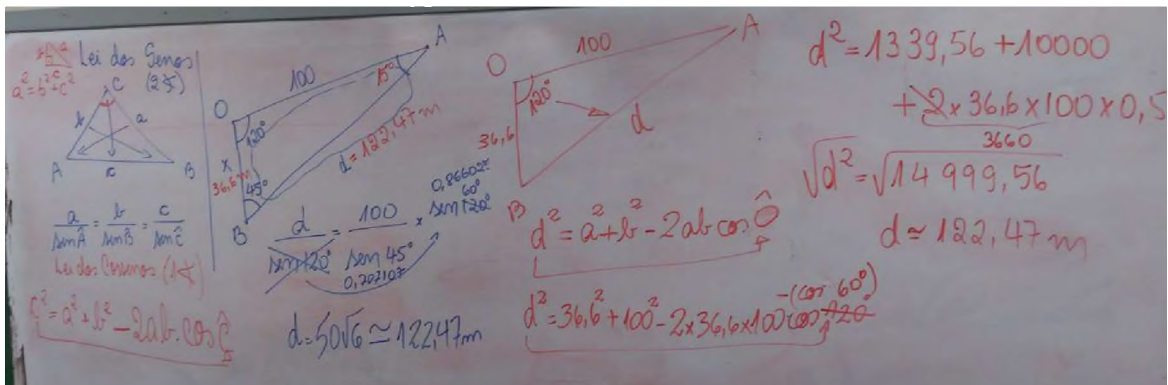 Lei dos Senos
a²=b²+c²
(2∡)
C
b
a
A
c
B
a/sen Â = b/sen B̂ = c/sen Ĉ
Lei dos Cossenos (1∡)
c²=a²+b²-2ab.cos Ĉ
A
100
15°
O
120°
x
36,6m
45°
B
d=122,47m
d/sen 120° = 100/sen 45° × sen 120°
0,86602
60°
0,707107
d=50√6≃122,47m
A
100
O
120°
36,6
d
B
d²=a²+b²-2ab cos Ô
-(cos 60°)
d²=36,6²+100²-2×36,6×100 cos 120°
d²=1339,56+10000
+2×36,6×100×0,5
3660
√d²=√14 999,56
d≃122,47m